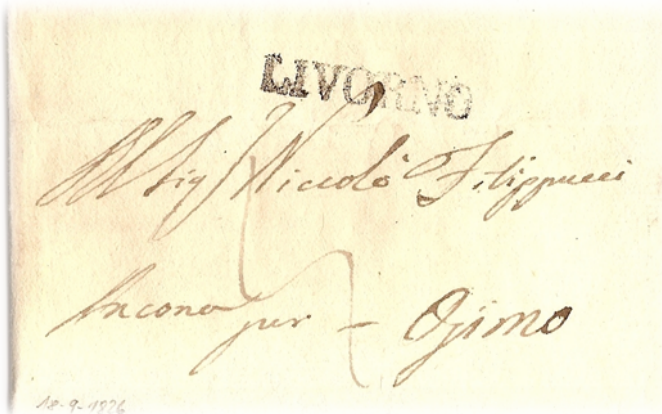 LIVORNO
Al Sig Niccolò Filippucci
Ancona per – Osimo
18-9-1826